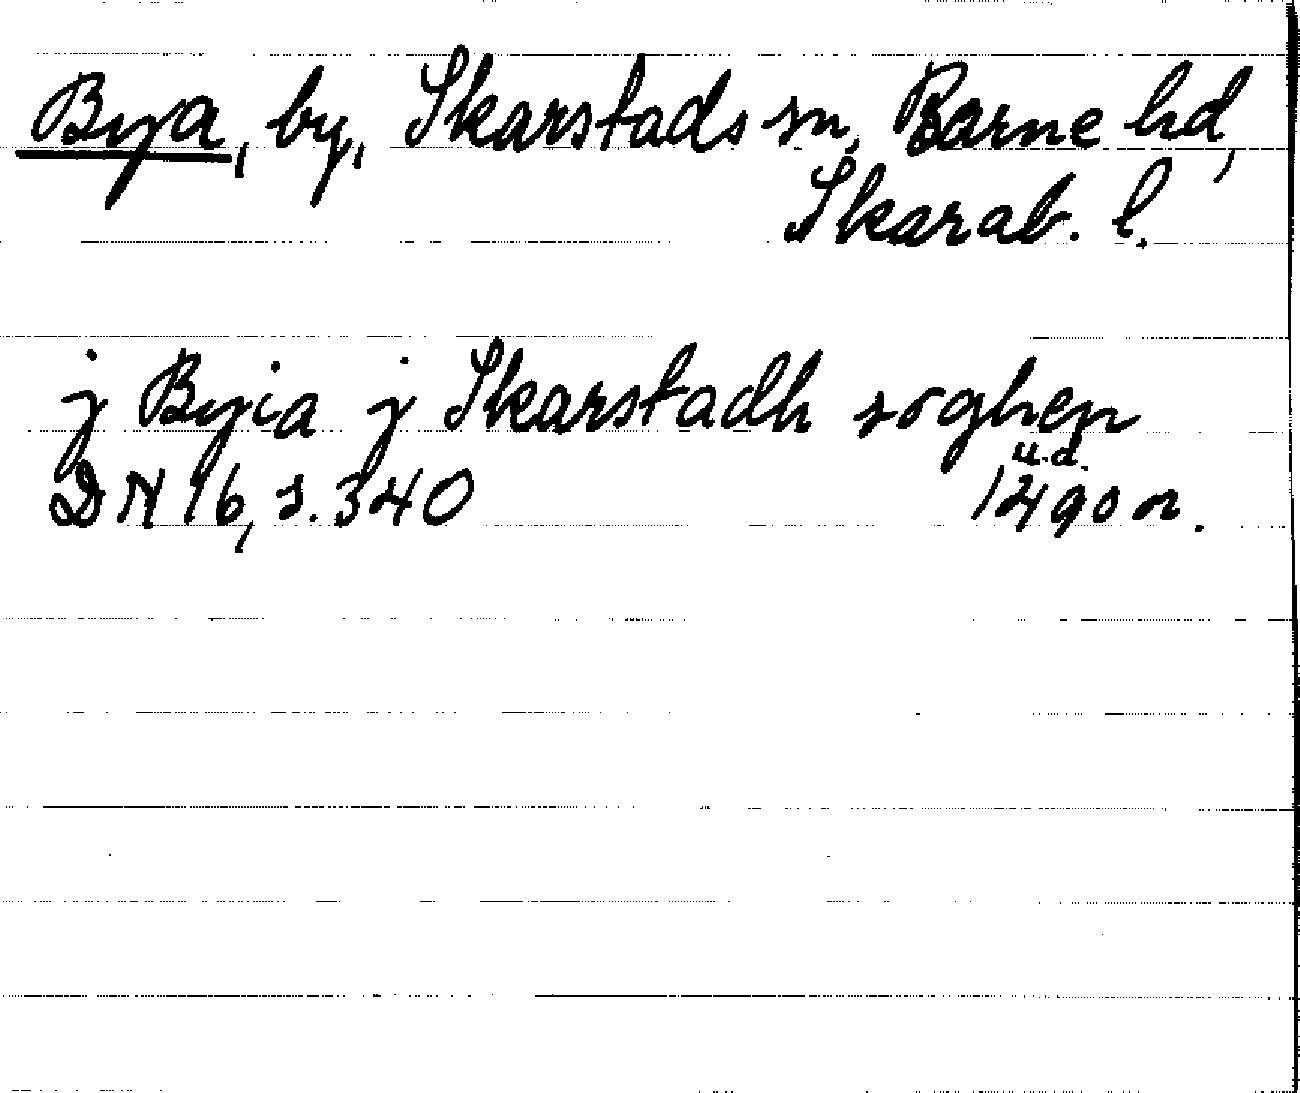 Bya, by, Skarstads sn, Barne hd,
Skarab. l.
j Byia j Skarstadh soghen
u.d.
DN 16, s. 340 1490 n.